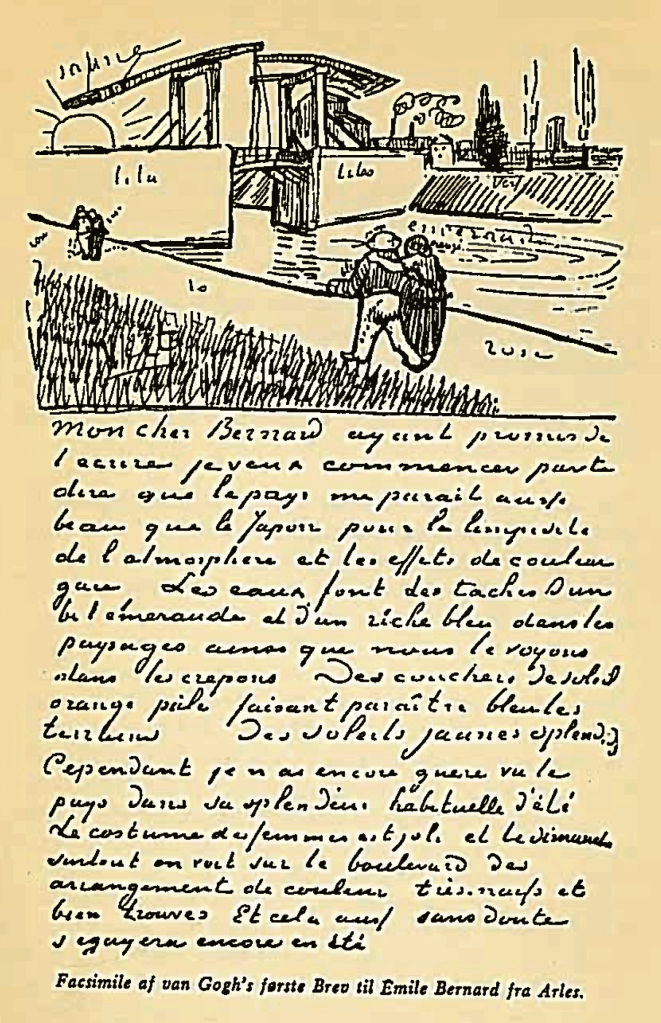 lila
Lilas
vert
emeraude
rose
Mon cher Bernard ayant promis de
t'ecrire je veux commencer par te
dire que le pays me parait aussi
beau que le Japon pour la limpidité
de l'atmosphere et les effets de couleur
gaie Les eaux font des taches d'un
bel émeraude et d'un riche bleu dans les
paysages ainsi que nous le voyons
dans les crepons Des couchers de soleil
orangé pâle faisant paraître bleu les
terrains Des soleils jaunes splendides
Cependant je n'ai encore guere vu le
pays dans sa splendeur habituelle d'été
Le costume des femmes est joli et le dimanche
surtout on voit sur le boulevard des
arrangement de couleur très naifs et
bien trouvés Et cela aussi sans doute
s'egayera encore en été
Facsimile af van Gogh's første Brev til Émile Bernard fra Arles.